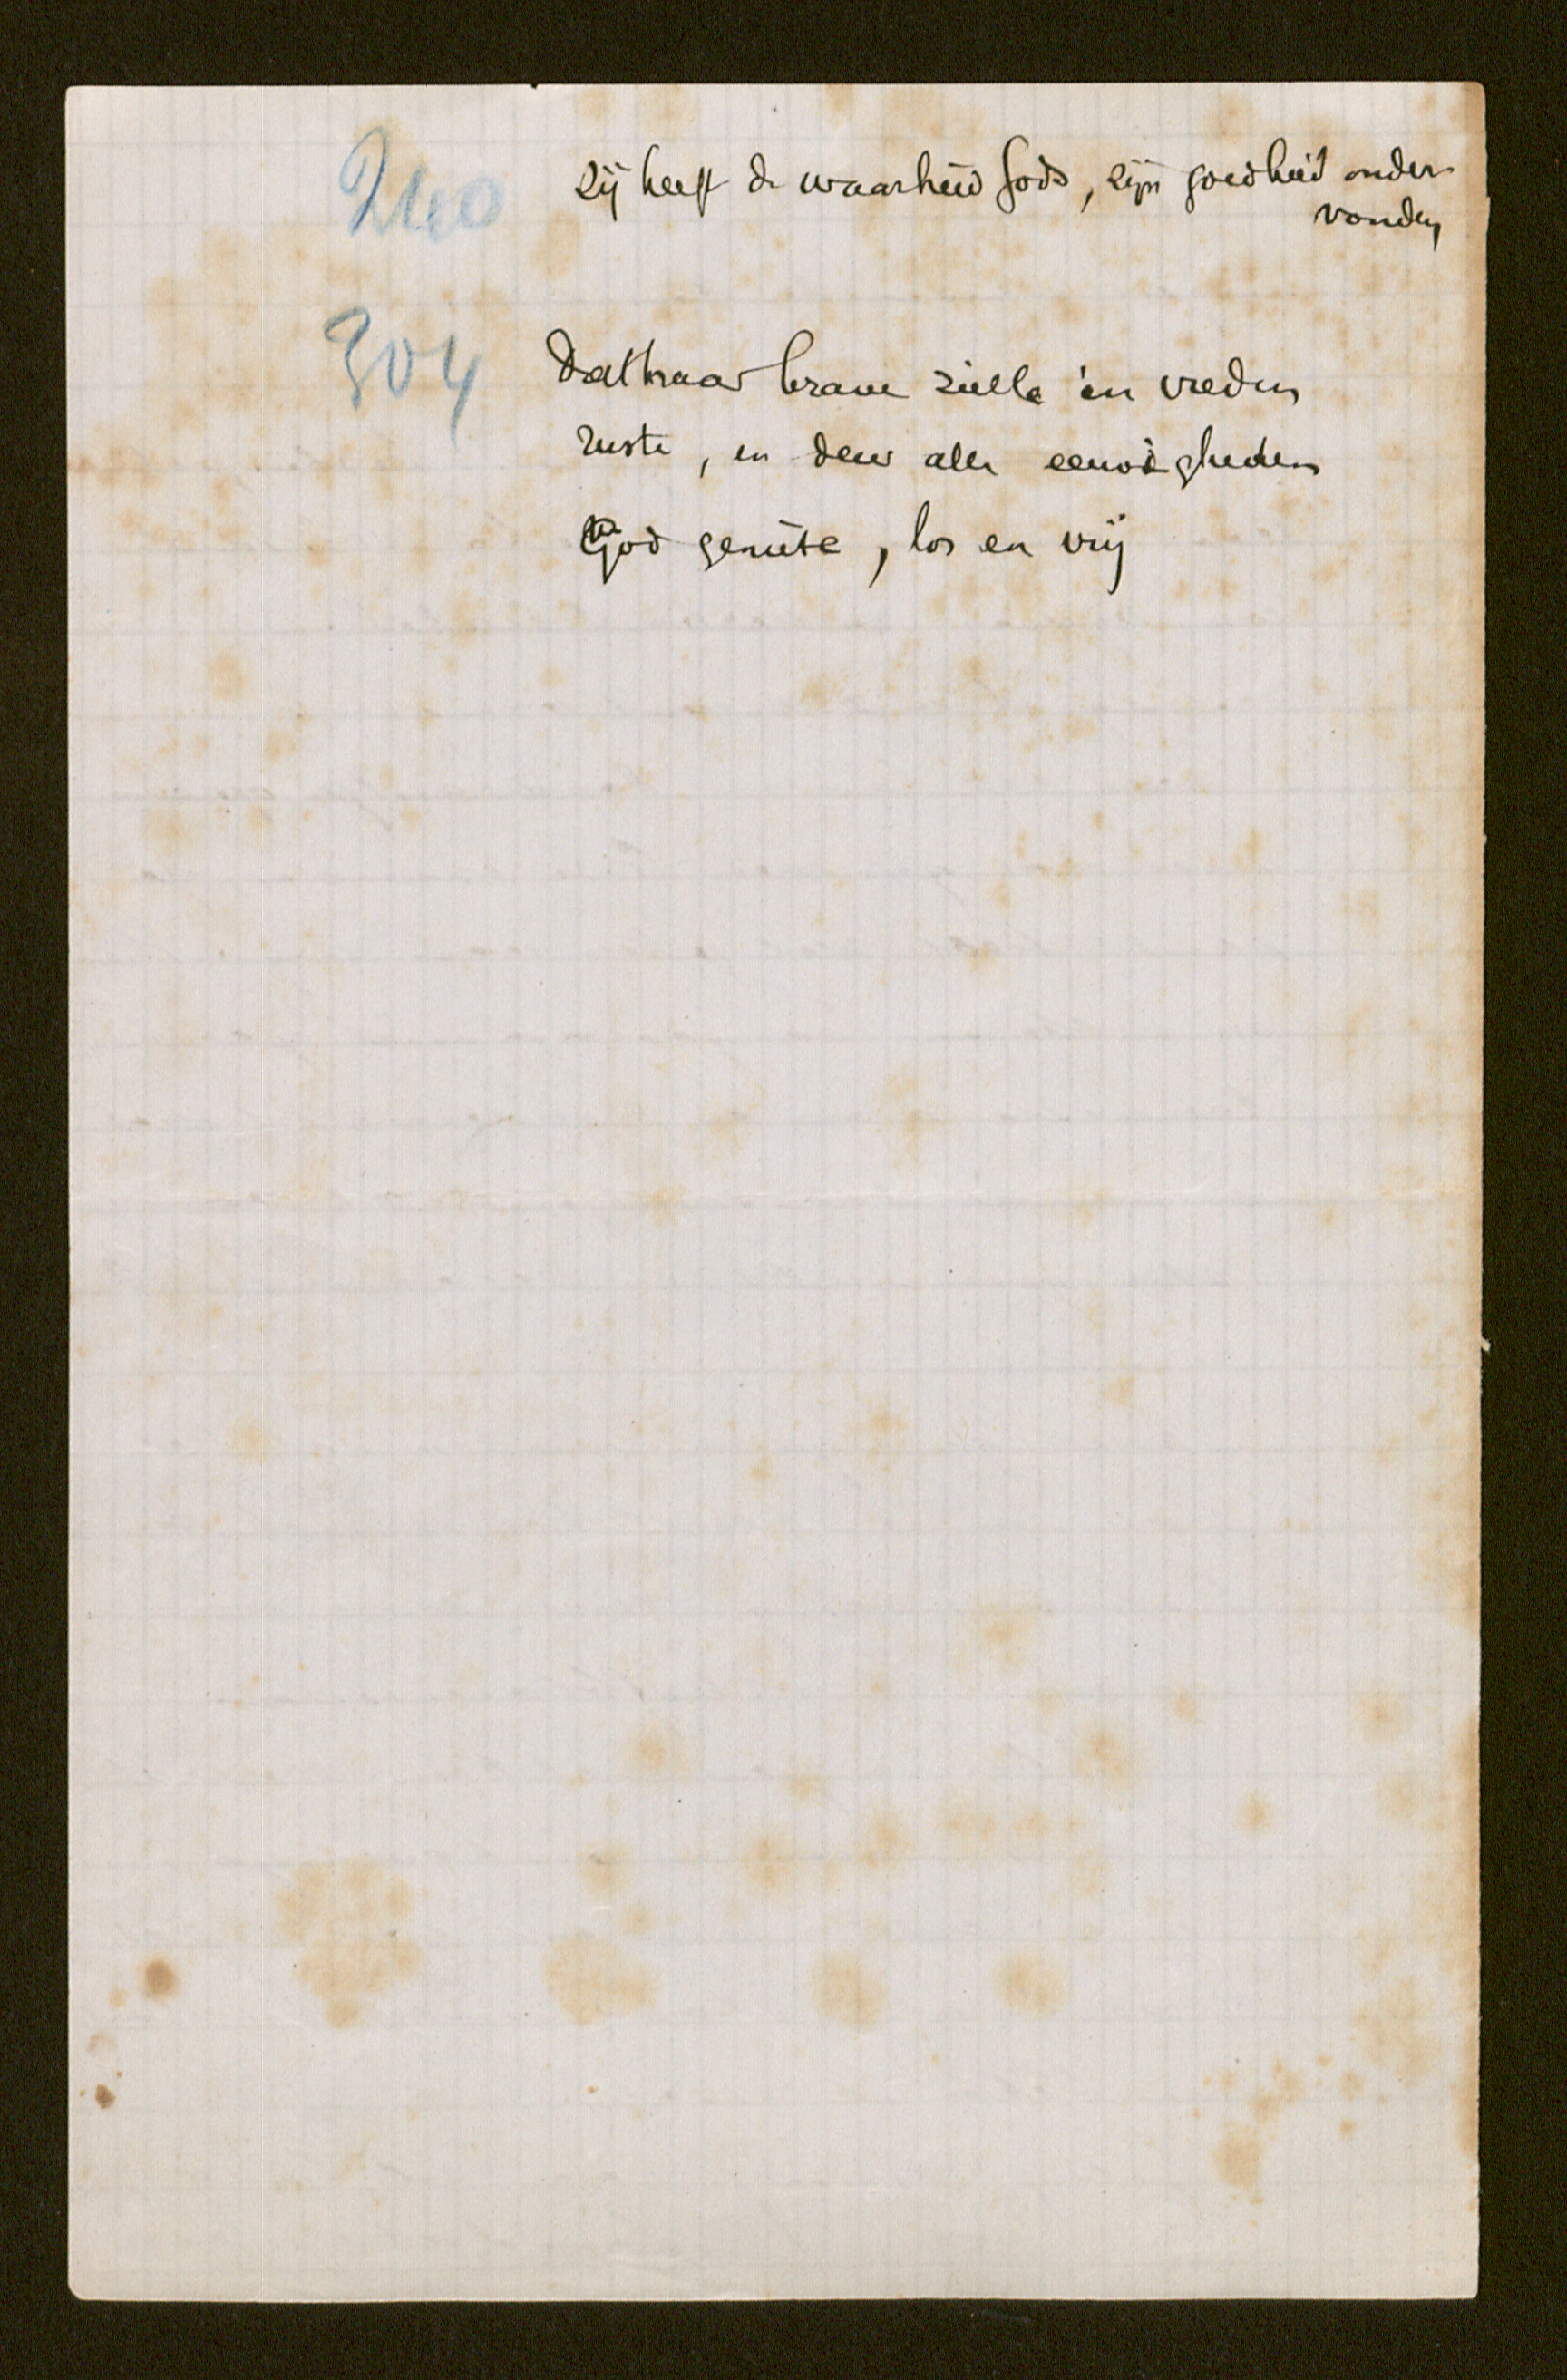 240 zij heeft de waarheid Gods, zijn goedheid onder-
vonden
304 Dat haar brave zielle in vreden
ruste, en deur alle eeuwigheden
God geniete, los en vrij